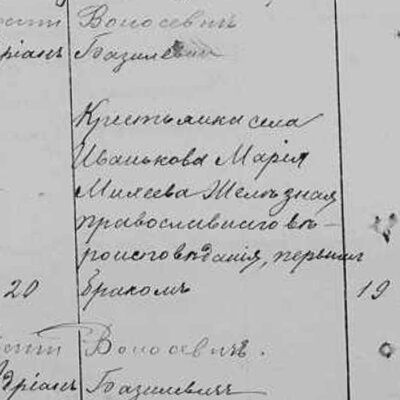 Волосевичъ
дріанъ Базилевич
Крестьянка села
Иванькова Марія
Михеева Желѣзная
православнаго вѣ-
роисповѣданія, первымъ
20 бракомъ 19
Волосевичъ.
дріанъ Базилевичъ